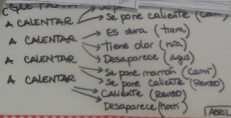 A CALENTAR → Se pone caliente (Cam)
A CALENTAR → Es dura (tiam)
→ Tiene olor (nia)
A CALENTAR → Desaparece (Agus)
A CALENTAR → Se pone marrón (Cami)
→ Se pone caliente (Renzo)
Caliente (Renzo)
Desaparece (Mati)
ABRIL